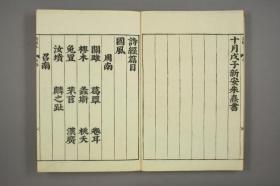 十月戊子新安朱熹書
詩經篇目
國風
周南
關雎 葛覃 卷耳
樛木 螽斯 桃夭
兔罝 芣苢 漢廣
汝墳 麟之趾
召南